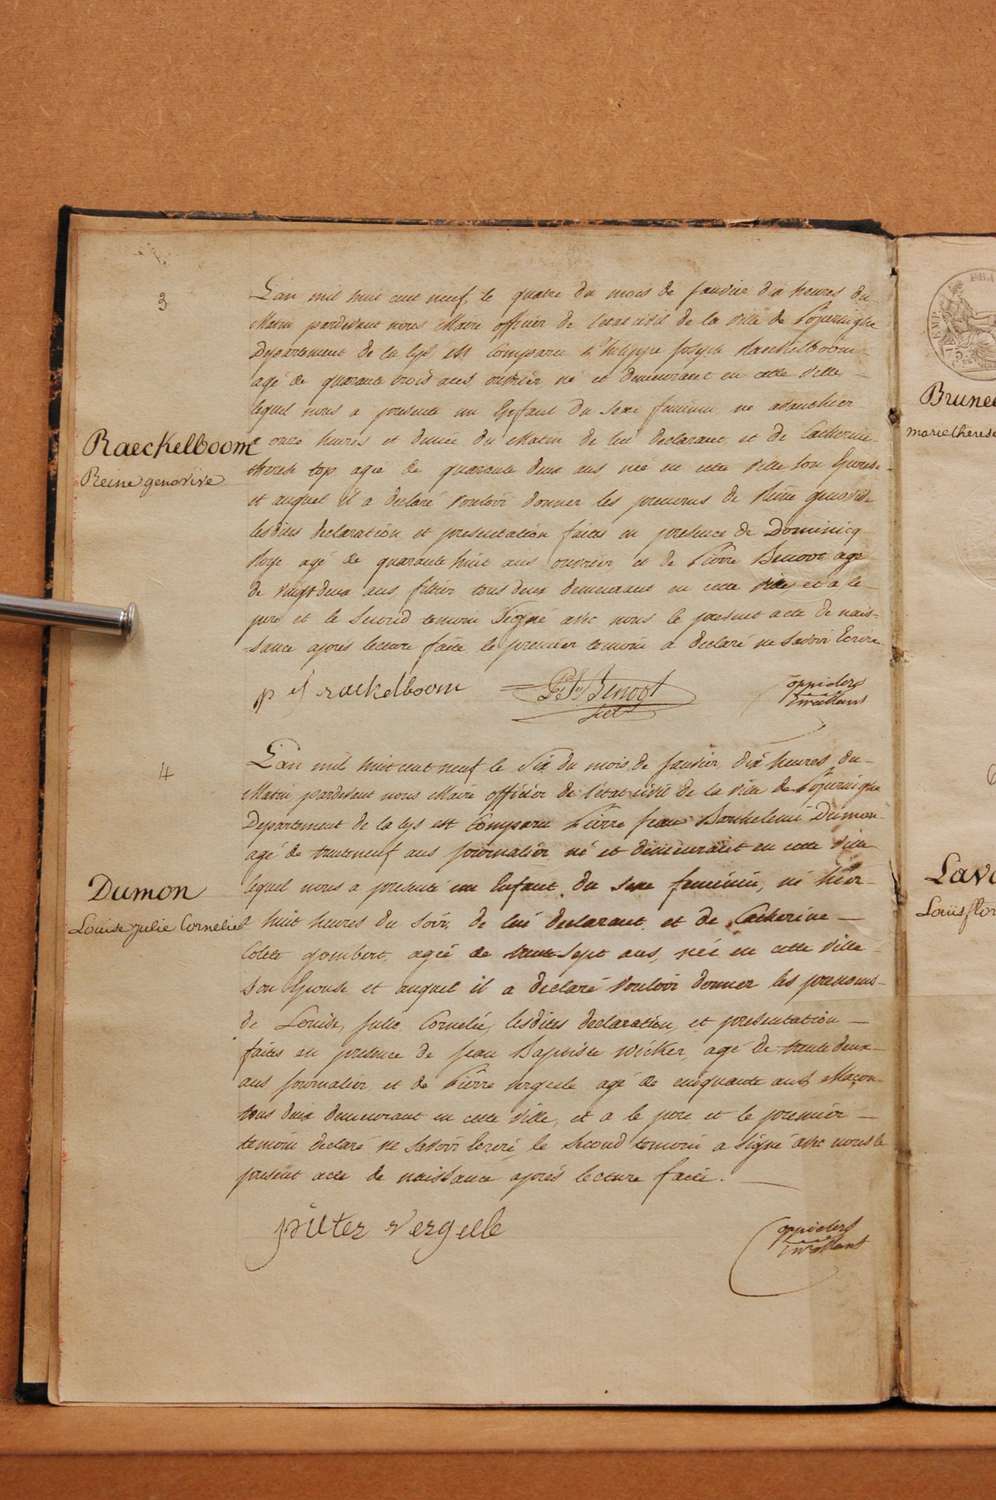 3
L'an mil huit cent neuf, le quatre du mois de Janvier dix heures du
Matin pardevant nous Maire officier de l'état civil de la ville de Poperinghe
Departement de la lys est Comparu Philippe Joseph Raeckelboom
agé de quarante trois ans ouvrier né et demeurant en cette ville
lequel nous a presenté un Enfant du sexe feminin né
a onze heures et demie du Matin de lui declarant et de Catherine
Raeckelboom
Reine genovive
therese top agée de quarante deux ans née en cette ville son Epouse
et auquel il a declaré vouloir donner les prenoms de Reine genovive
lesdites declaration et presentation faites en presence de Dominicq
agé de quarante huit ans ouvrier et de Pierre Benoot agé
de vingt deux ans tous deux demeurans en cette ville et a le
pere et le Second temoin Signé avec nous le present acte de nais-
sance après lecture faite, le premier temoin a declaré ne savoir Ecrire
p j rackelboom
P. J. Benoot
4
L'an mil huit cent neuf le Six du mois de Janvier dix heures du
Matin pardevant nous Maire officier de l'état civil de la ville de Poperinghe
Departement de la lys est Comparu Pierre Jean Barthelemi Dumon
agé de trenteneuf ans journalier né et demeurant en cette ville
Dumon
Louise julie Cornelie
lequel nous a presenté un Enfant du sexe feminin, né hier
à huit heures du soir, de lui declarant, et de Catherine
Colete gombert, agée de trente sept ans, née en cette ville
Son Epouse et auquel il a declaré vouloir donner les prenoms
de Louise, Julie, Cornelie, lesdites declaration et presentation
faites en presence de jean Baptiste wicker, agé de trente deux
ans journalier et de Pierre vergeele agé de cinquante ans Maçon
tous deux demeurant en cette ville, et a le pere et le premier
temoin declaré ne savoir Ecrire, le Second temoin a signé avec nous le
present acte de naissance après lecture faite.
piter vergelle
Brune
marie therese
Lava
Louis flor